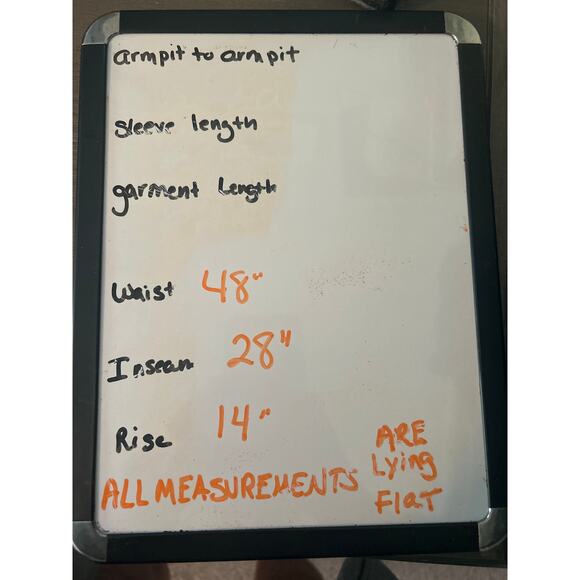 armpit to armpit
Sleeve length
garment Length
Waist 48"
Inseam 28"
Rise 14"
ALL MEASUREMENTS ARE
Lying
Flat